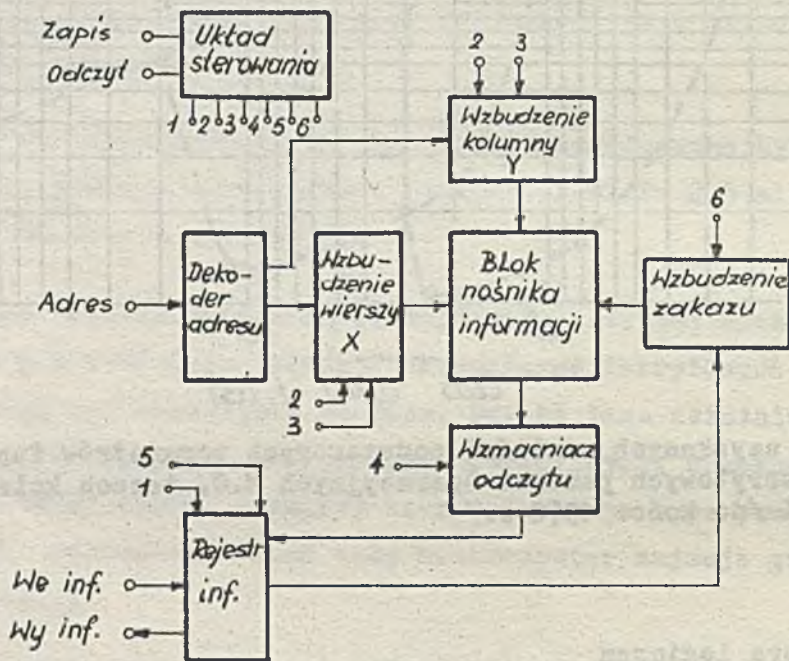 Zapis
Odczyt
Układ
sterowania
1 2 3 4 5 6
2 3
Wzbudzenie
kolumny
Y
6
Adres
Deko-
der
adresu
Wzbu-
dzenie
wierszy
X
Blok
nośnika
informacji
Wzbudzenie
zakazu
2
3
4
Wzmacniacz
odczytu
5
1
Rejestr
inf.
We inf.
Wy inf.